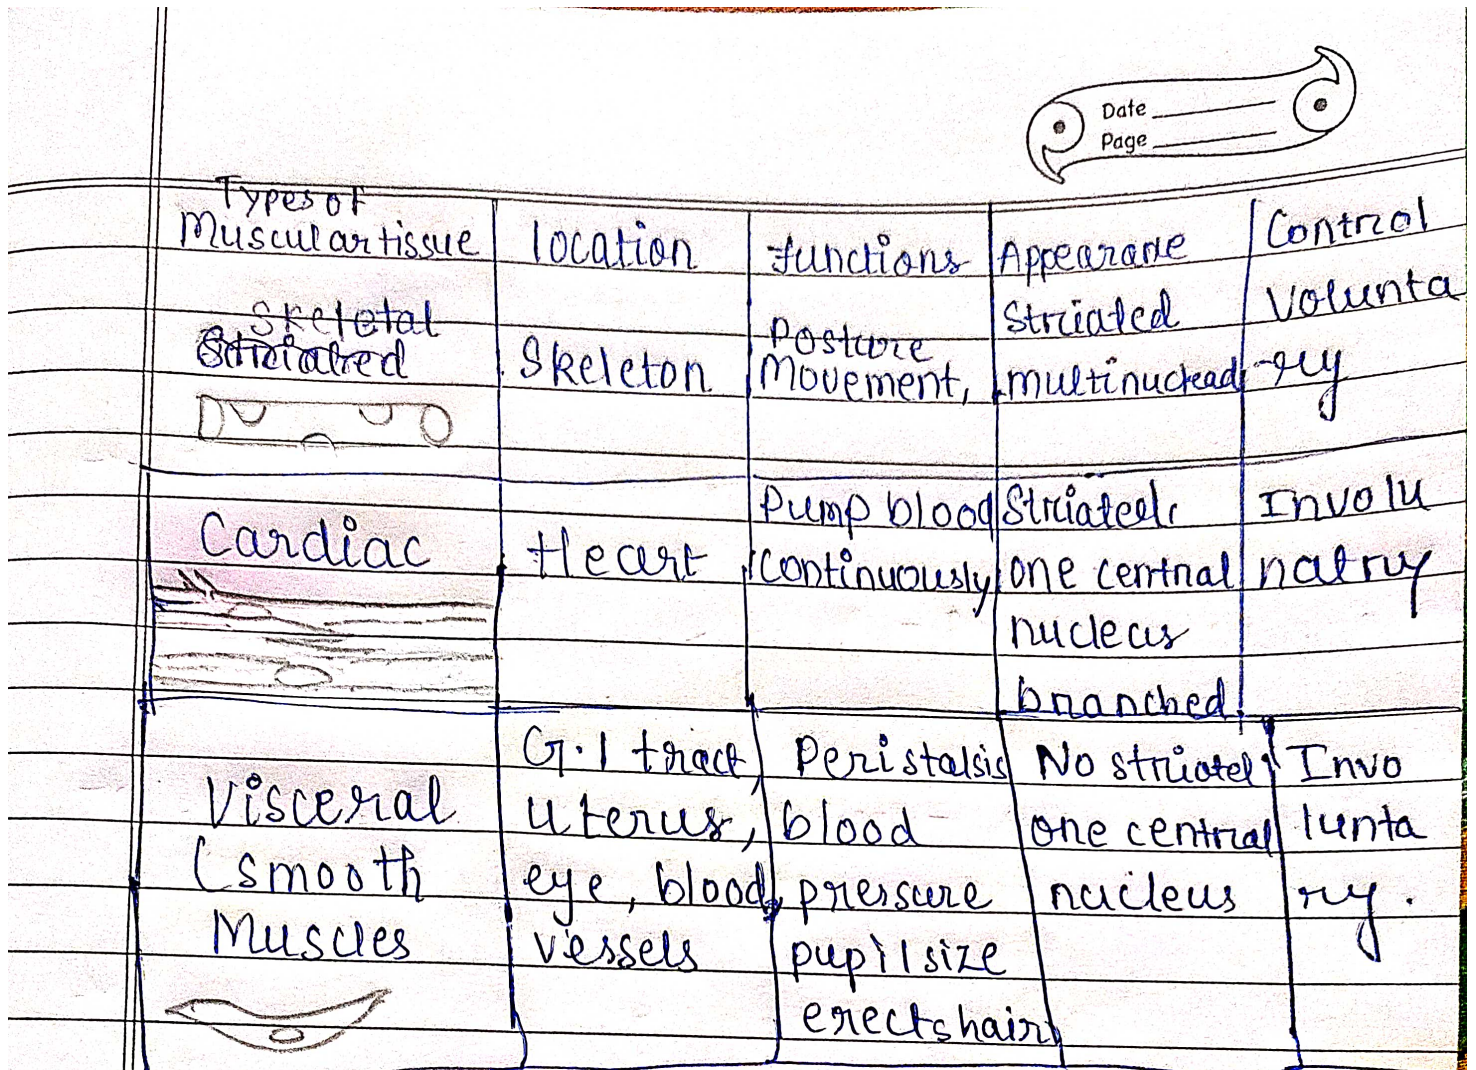 Date
Page
Types of
Muscular tissue
location
functions
Appearane
Control
Skeletal
Skeleton
Posture
Movement,
Striated
multinuclead
Volunta
-ry
Cardiac
Heart
Pump blood
continuously
Striated
one central
nucleus
branched
Involu
natry
Visceral
(smooth
Muscles
G.I tract,
uterus,
eye, blood
vessels
Peristalsis
blood
pressure
pupil size
erects hair
No striated
one central
nucleus
Invo
lunta
ry.